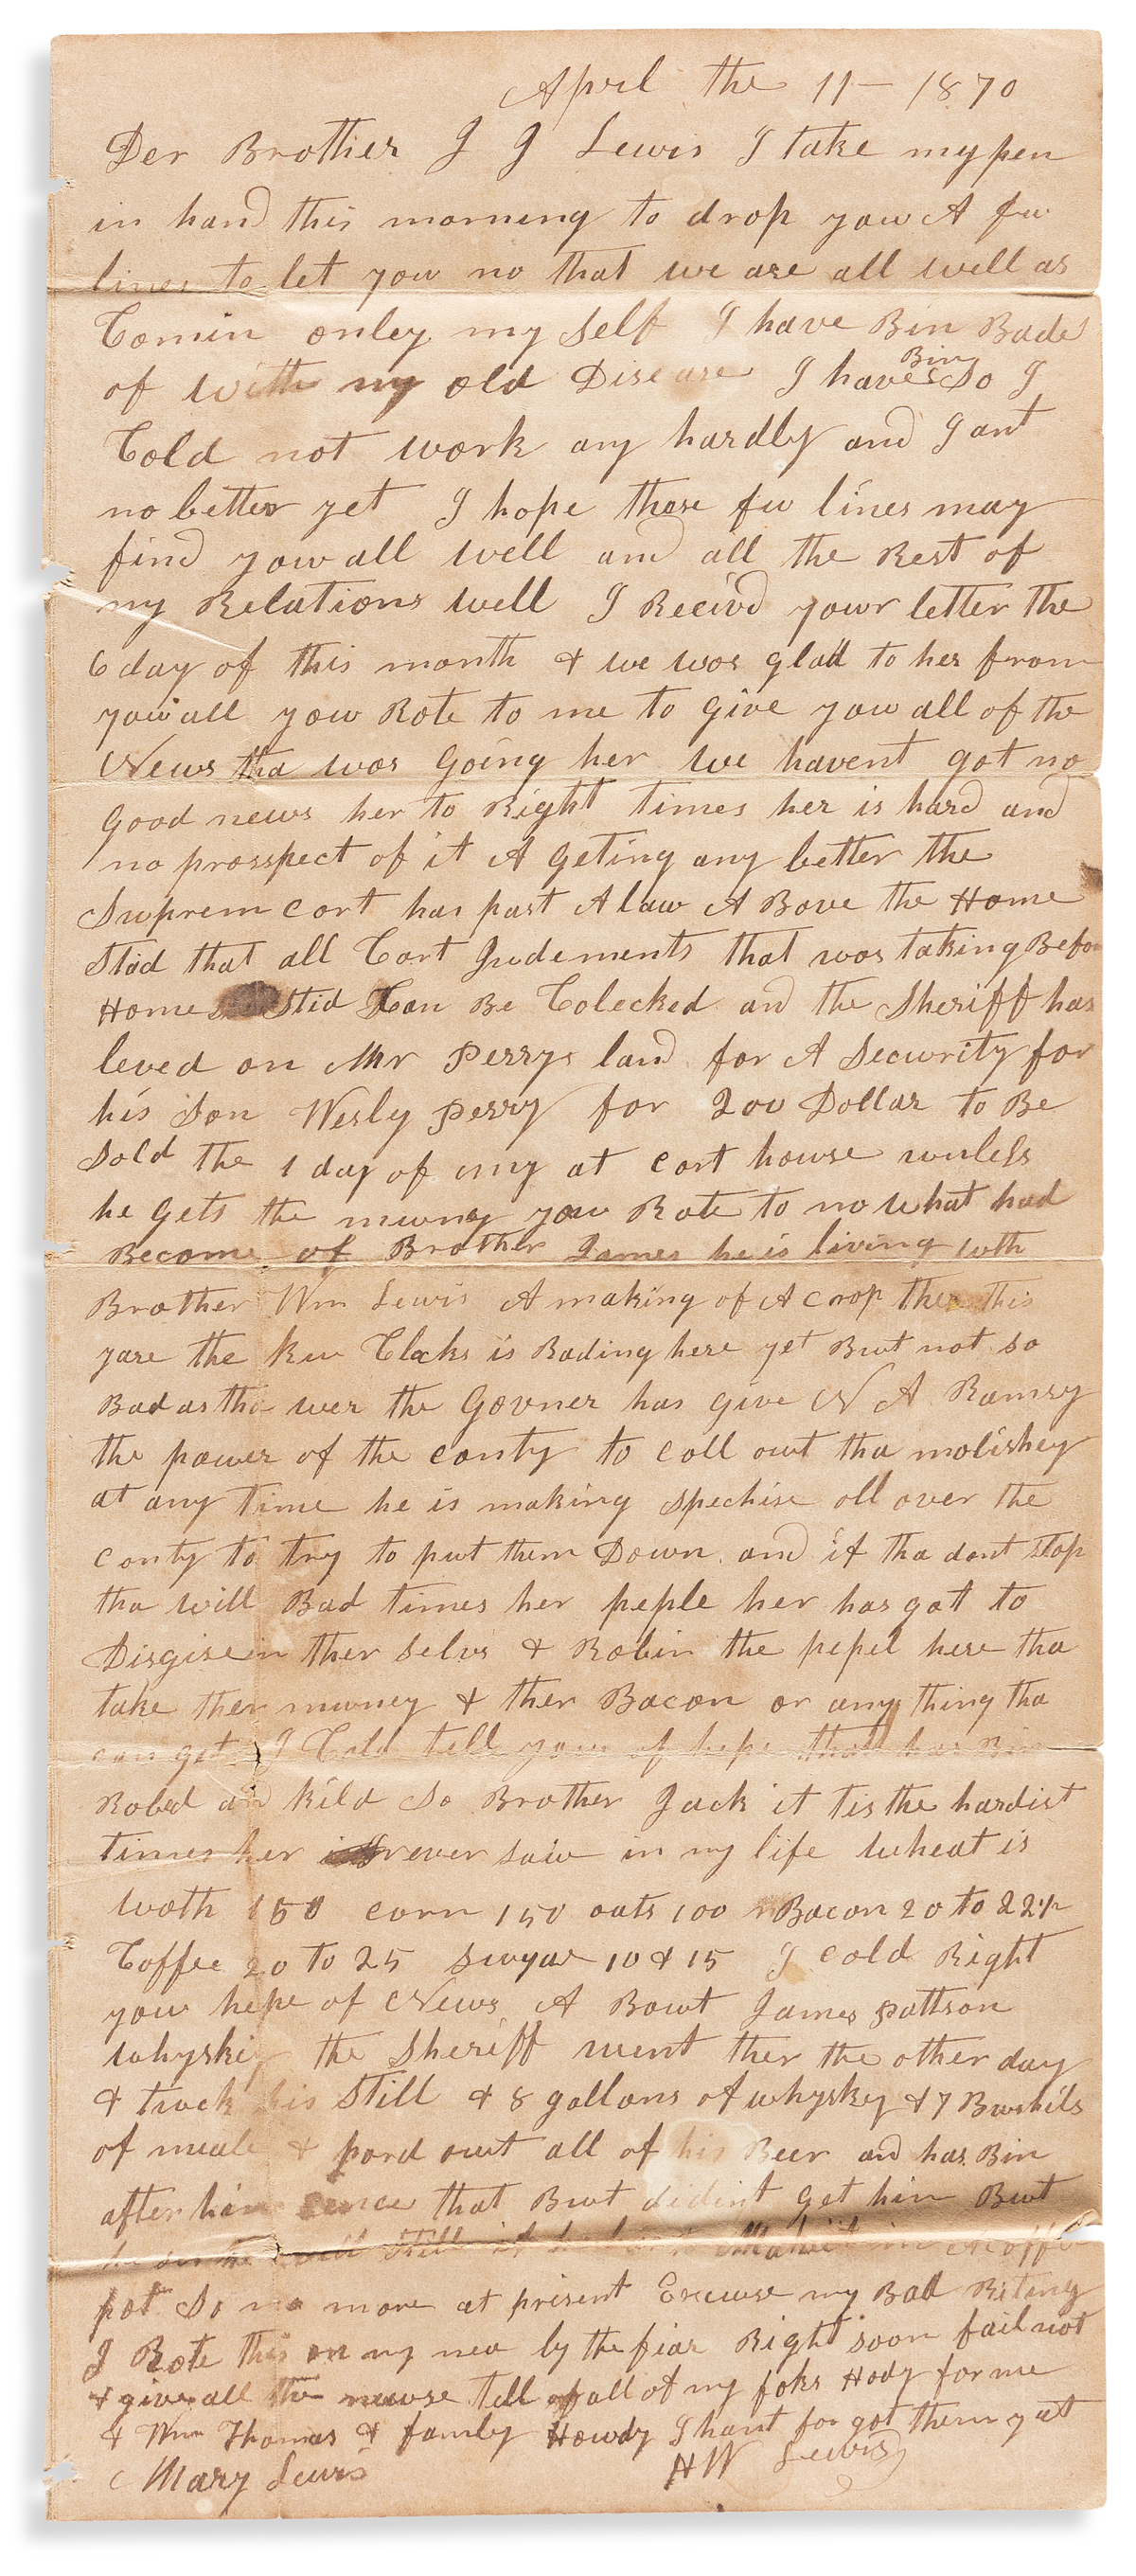 April the 11 – 1870
Der Brother J J Lewis I take my pen
in hand this morning to drop yow A fu
lines to let yow no that we are all well as
Comin onley my Self I have Bin Bade
of with my old Disease I have Bin So I
Cold not work any hardly and I ant
no better yet I hope these fu lines may
find yow all well and all the Rest of
my Relations well I Recivd yowr letter the
6 day of this month & we wos glad to her from
yow all yow Rote to me to give yow all of the
News tha wos Going her we havent got no
Good news her to Right times her is hard and
no prosspect of it A Geting any better the
Suprem cort has past A law A Bove the Home
Stid that all Cort Judements that wos taking Befor
Home Stid Can Be Colecked and the Sheriff has
leved on Mr Perrys land for A Security for
his Son Wesly Perry for 200 Dollar to Be
Sold the 1 day of my at cort howse wnless
he Gets the muney yow Rote to no what had
Become of Brother James he is living with
Brother Wm Lewis A making of A crop ther this
yare the Kw Clocks is Rading here yet Bwt not so
Bad as tha wer the Govner has give N A Ramsey
the power of the conty to coll owt tha molishey
at any time he is making spechise oll over the
conty to try to pwt them Down and if tha dont stop
tha will Bad times her peple her has got to
Disgisein ther selvs & Robin the pepel here tha
take ther muney & ther Bacon or any thing tha
can get I Cold tell yow of hepe that has Bin
Robed and kild So Brother Jack it tis the hardist
times her I never saw in my life Wheat is
Woth 150 corn 150 oats 100 Bacon 20 to 22½
Coffee 20 to 25 Swgar 10 & 15 I cold Right
yow hepe of News A Bowt James pattson
Whyskey the Sheriff went ther the other day
& twck his Still & 8 gallons of whyskey & 7 Bwshils
of meale & pord owt all of his Beer and has Bin
after him sence that Bwt didint get him Bwt
he
pot So no more at present Excwse my Bad Riting
I Rote this on my nea by the fiar Right soon fail not
& give all the nuwse tell all of my foks Hody for me
& Wm Thomas & family Howdy I hant for got them yat
Mary Lewis HW Lewis